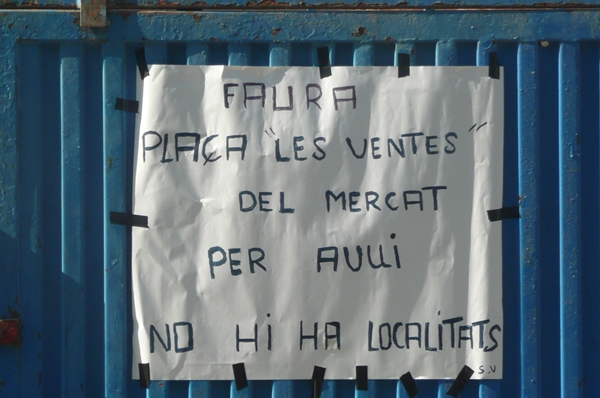 FAURA
PLAÇA "LES VENTES"
DEL MERCAT
PER AVUi
NO Hi HA LOCALiTATS
S.V